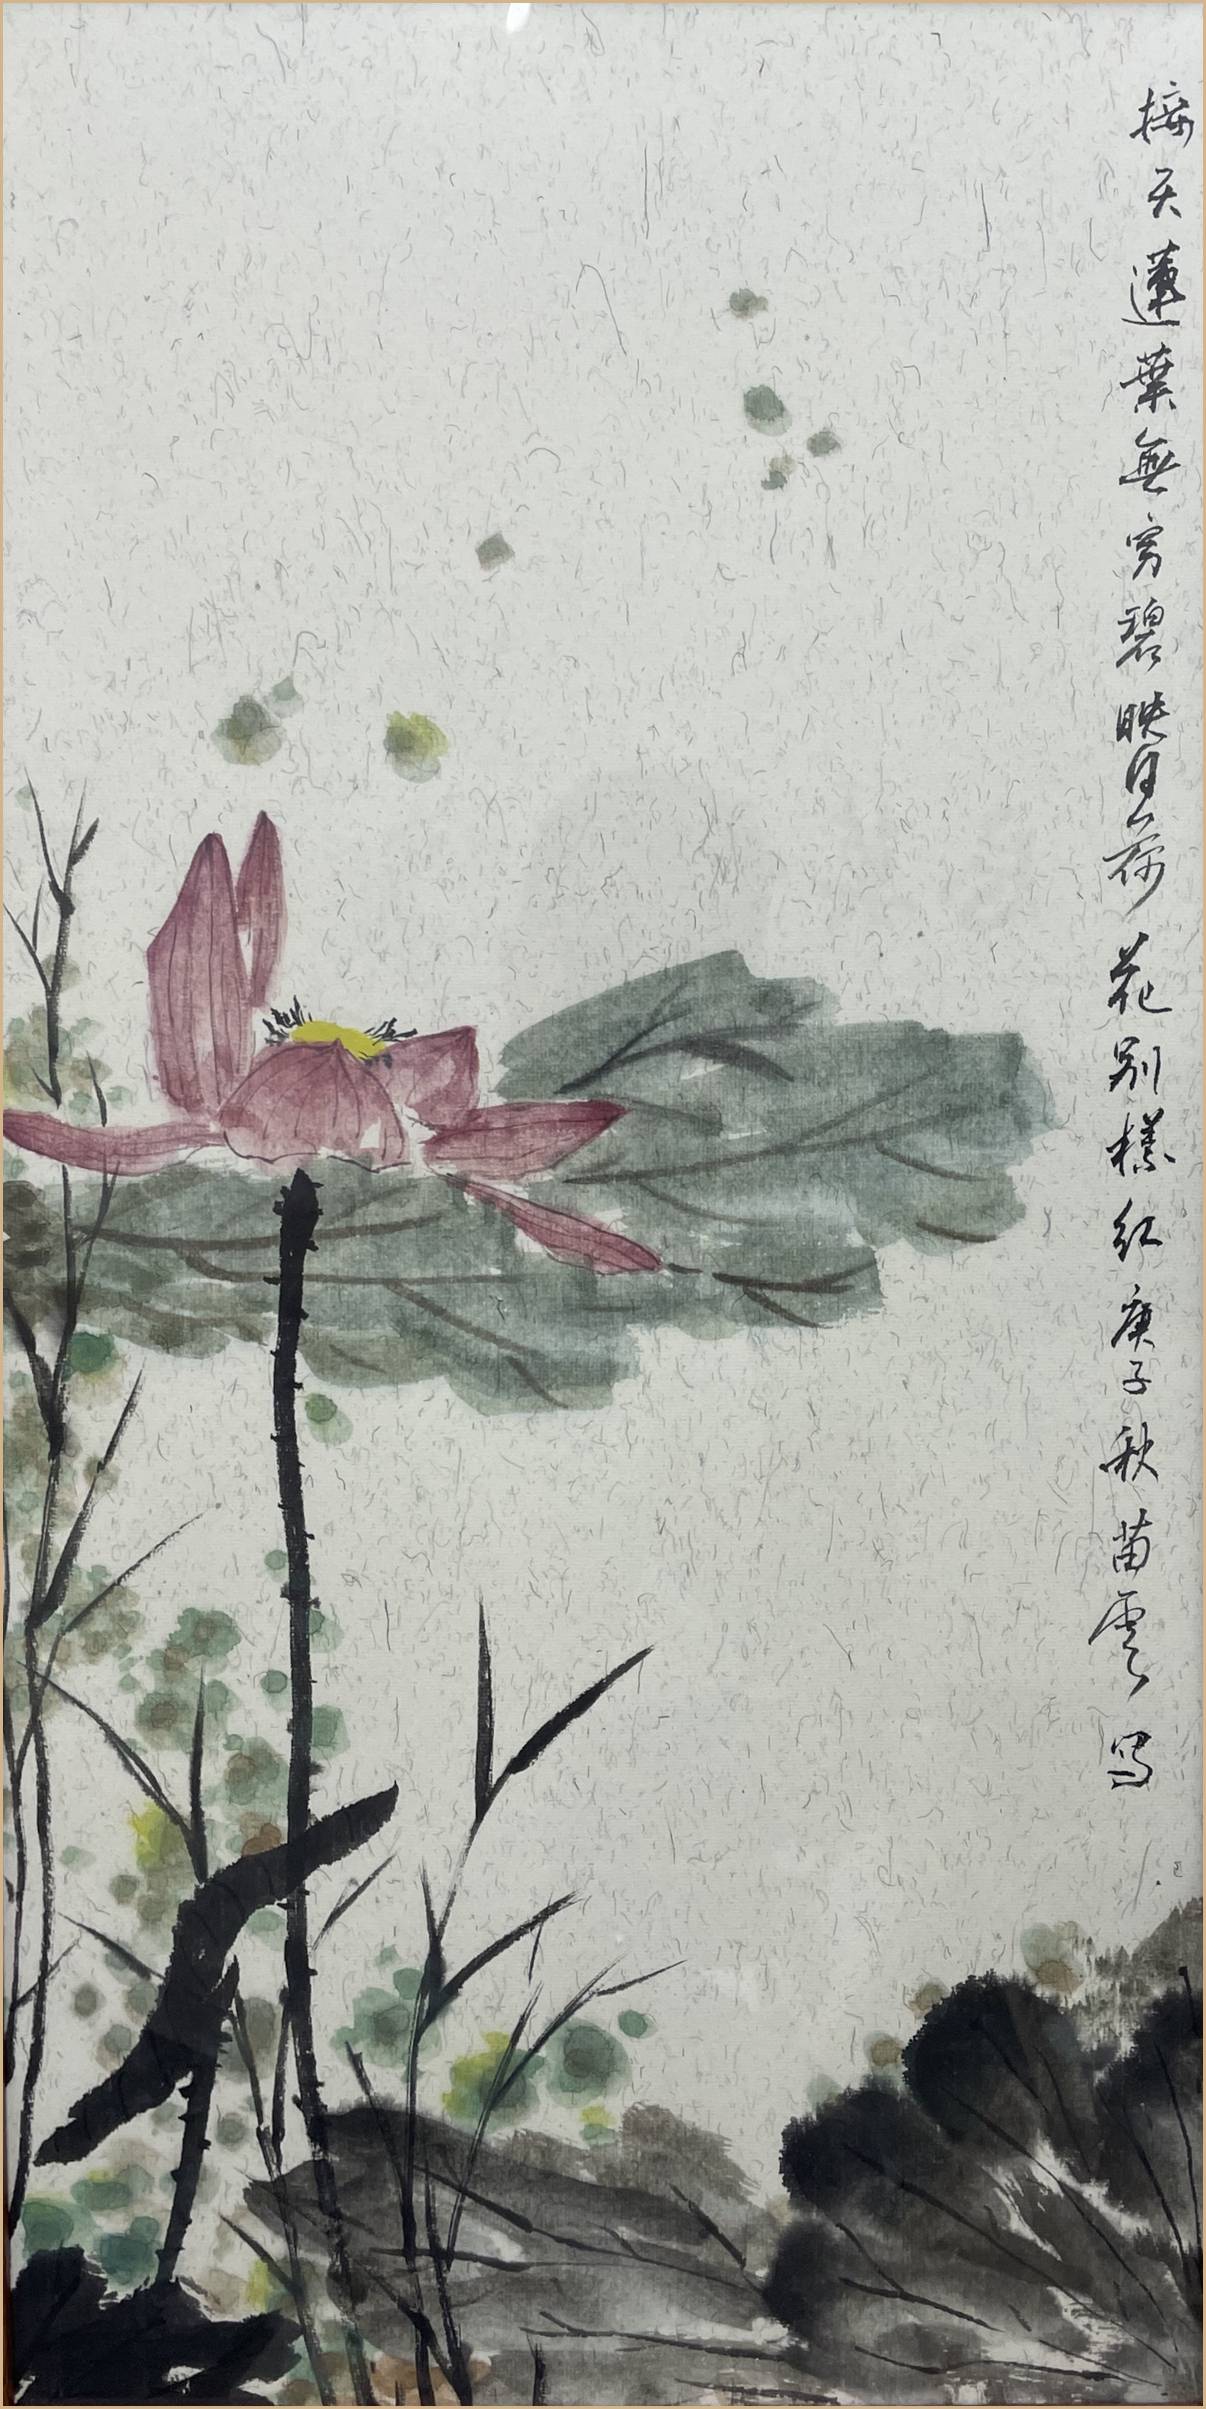 接天蓮葉無穷碧映日荷花别樣红庚子秋苗雲写